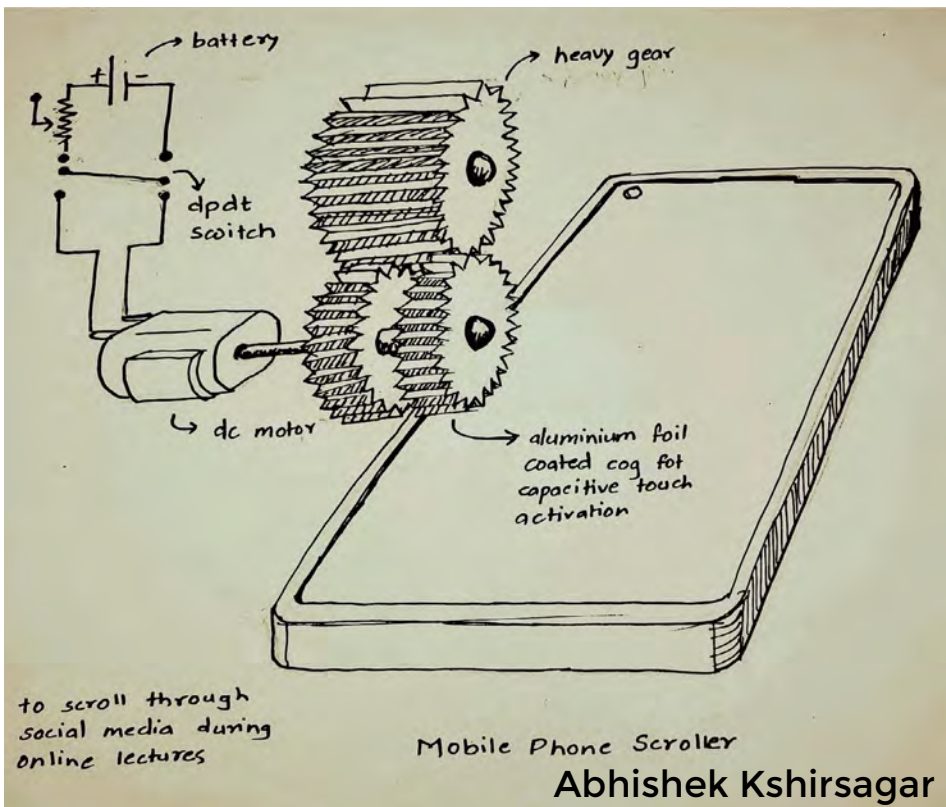 battery
heavy gear
+ -
dpdt
switch
dc motor
aluminium foil
coated cog fot
capacitive touch
activation
to scroll through
social media during
online lectures
Mobile Phone Scroller
Abhishek Kshirsagar